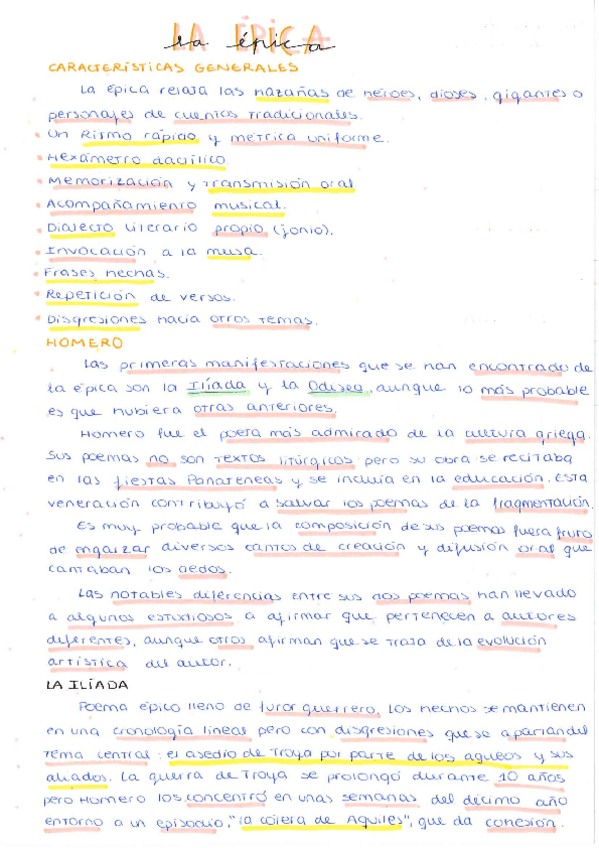 LA ÉPICA
la épica
CARACTERÍSTICAS GENERALES
La épica relata las hazañas de héroes, dioses, gigantes o
personajes de cuentos tradicionales.
• Un Ritmo rápido y métrica uniforme.
• Hexámetro dactílico
• Memorización y transmisión oral
• Acompañamiento musical.
• Dialecto literario propio (jonio).
• Invocación a la musa.
• Frases hechas.
• Repetición de versos.
• Disgresiones hacia otros temas.
HOMERO
Las primeras manifestaciones que se han encontrado de
la épica son la Ilíada y la Odisea, aunque lo más probable
es que hubiera otras anteriores.
Homero fue el poeta más admirado de la cultura griega.
Sus poemas no son textos litúrgicos pero su obra se recitaba
en las fiestas Panateneas y se incluía en la educación. Esta
veneración contribuyó a salvar los poemas de la fragmentación.
Es muy probable que la composición de sus poemas fuera fruto
de engarzar diversos cantos de creación y difusión oral que
cantaban los aedos.
Las notables diferencias entre sus dos poemas han llevado
a algunos estudiosos a afirmar que pertenecen a autores
diferentes, aunque otros afirman que se trata de la evolución
artística del autor.
LA ILÍADA
Poema épico lleno de furor guerrero, los hechos se mantienen
en una cronología lineal pero con disgresiones que se apartan del
tema central: el asedio de Troya por parte de los aqueos y sus
aliados. La guerra de Troya se prolongó durante 10 años
pero Homero los concentró en unas semanas del décimo año
entorno a un episodio, "la cólera de Aquiles", que da conexión.